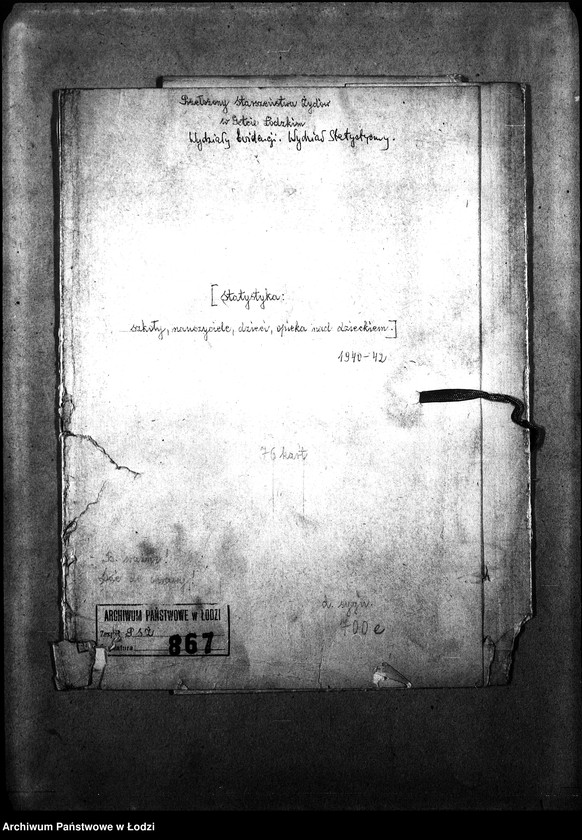 Przełożony Starszeństwa Żydów
w Getcie Łódzkim
Wydziały Ewidencji. Wydział Statystyczny.
[Statystyka:
szkoły, nauczyciele, dzieci, opieka nad dzieckiem.]
1940-42
76 kart
B. ważne!
ARCHIWUM PAŃSTWOWE w ŁODZI
Zespół PSŻ
Sygnatura 867
d. sygn.
700e
Archiwum Państwowe w Łodzi